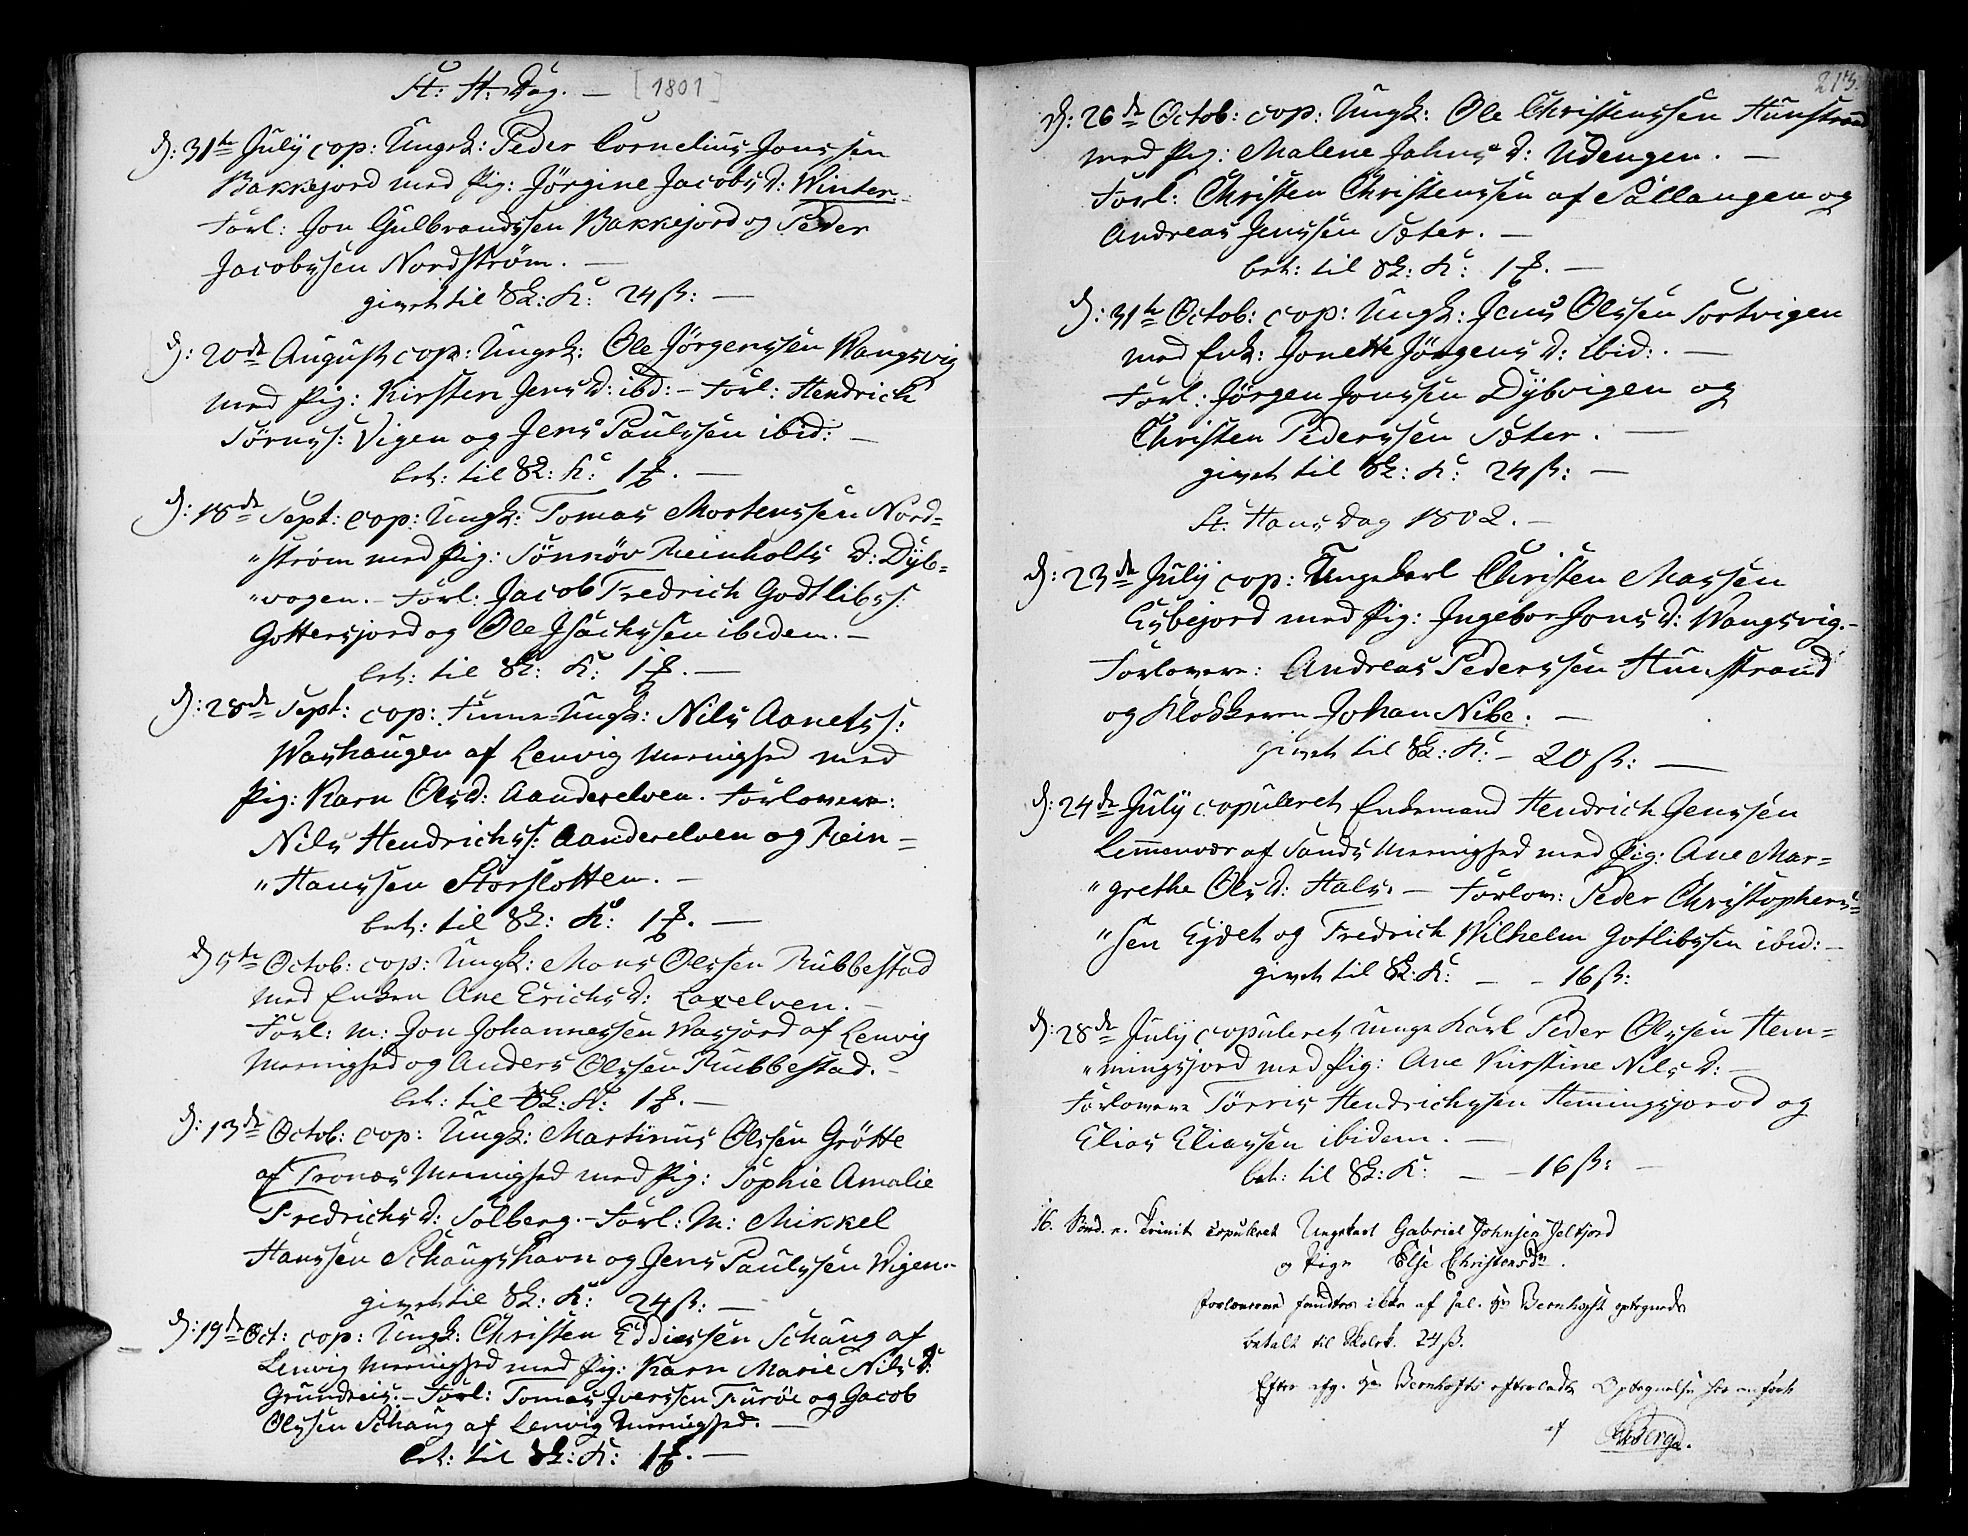 St: H: Dag. — [1801]
d: 31te July cop: Ungk: Peder Cornelius Jonssen
Bakkejord med Pig: Jörgine Jacobs D: Winter.
Forl: Jon Gulbrandssen Bakkejord og Peder
Jacobssen Nordström. —
givet til Sk: K: 24 ß: —
d: 20de August cop: Ungk: Ole Jörgenssen Wangsvig
med Pig: Kirsten Jens D: ibd: — Forl: Hendrick
Sörnss: Vigen og Jens Paulssen ibid: —
bet: til Sk: K: 1 f. —
d: 18de Sept: cop: Ungk: Tomas Mortenssen Nord=
"ström med Pig: Sönnöv Reinholts D: Dyb=
"vogen. — Forl: Jacob Fredrich Godtlibss:
Gottersjord og Ole Isachssen ibidem. —
bet: til Sk: K: 1 f. —
d: 28de Sept: cop: Finne-Ungk: Nils Aanetss:
Washaugen af Lenvig Menighed med
Pig: Karn Ols D: Aanderelven. Forlovere:
Nils Hendrichss: Aanderelven og Rein=
"Hanssen Storslotten. —
bet: til Sk: K: 1 f. —
d 5te Octob: cop: Ungk: Mons Olssen Rubbestad
med Enken Ane Erichs D: Laxelven. —
Forl: M: Jon Johannessen Wasjord af Lenvig
Menighed og Anders Olssen Rubbestad. —
bet: til Sk: K: 1 f. —
d: 13de Octob: cop: Ungk: Martinus Olssen Grötte
af Tronæs Menighed med Pig: Sophie Amalie
Fredrichs D: Solberg. — Forl: M: Mikkel
Hanssen Schaugshavn og Jens Paulssen Wigen.
givet til Sk: K: 24 ß: —
d: 19de Oct: cop: Ungk: Christen Eddissen Schaug af
Lenvig Menighed med Pig: Karn Marie Nils D:
Grundreis. — Forl: Tomas Iverssen Furöe og Jacob
Olssen Schaug af Lenvig Menighed. —
bet: til Sk: K: 1 f. —
213.
d: 26de Octob: cop: Ungk: Ole Christenssen Hunstrand
med Pig: Malene Jahns D: Udengen. —
Forl: Christen Christenssen af Sallangen og
Andreas Jenssen Sæter. —
bet: til Sk: K: 1 f. —
d: 31te Octob: cop: Ungk: Jens Olssen Sortvigen
med Enk: Jonette Jörgens D: ibid: —
Forl: Jörgen Jonssen Dybvigen og
Christen Pederssen Sæter. —
givet til Sk: K: 24 ß: —
St. Hans Dag 1802. —
d: 23de July cop: Ungekarl Christen Massen
Esbejord med Pig: Ingebor Jons D: Wangsvig. —
Forlovere: Andreas Pederssen Hunstrand
og Klokkeren Johan Nibe. —
givet til Sk: K: — 20 ß: —
d: 24de July copuleret Enkemand Hendrich Jenssen
Lemmenvær af Sands Menighed med Pig: Ane Mar=
"grethe Ols D: Hals. — Forlov: Peder Christophers=
"sen Ejdet og Fredrich Wilhelm Gotlibssen ibid: —
givet til Sk: K: — - 16 ß:
d: 28de July copuleret Unge Karl Peder Olssen Hem=
"mingsjord med Pig: Ane Kirstine Nils D: —
Forlovere Törris Hendrichssen Hemingsjorod og
Elias Eliassen ibidem. —
bet: til Sk: K: — — 16 ß: —
16. Sönd. e. Trinit copuleret Ungekarl Gabriel Johnsen Jelfjord
og Pige Else Christensdr.
Forloverne fandtes ikke af sal. Hr Bernhoft optegnede
betalt til Skolek. 24 ß.
Efter afg. Hr Bernhofts efterladte Optegnelse her anfört
af